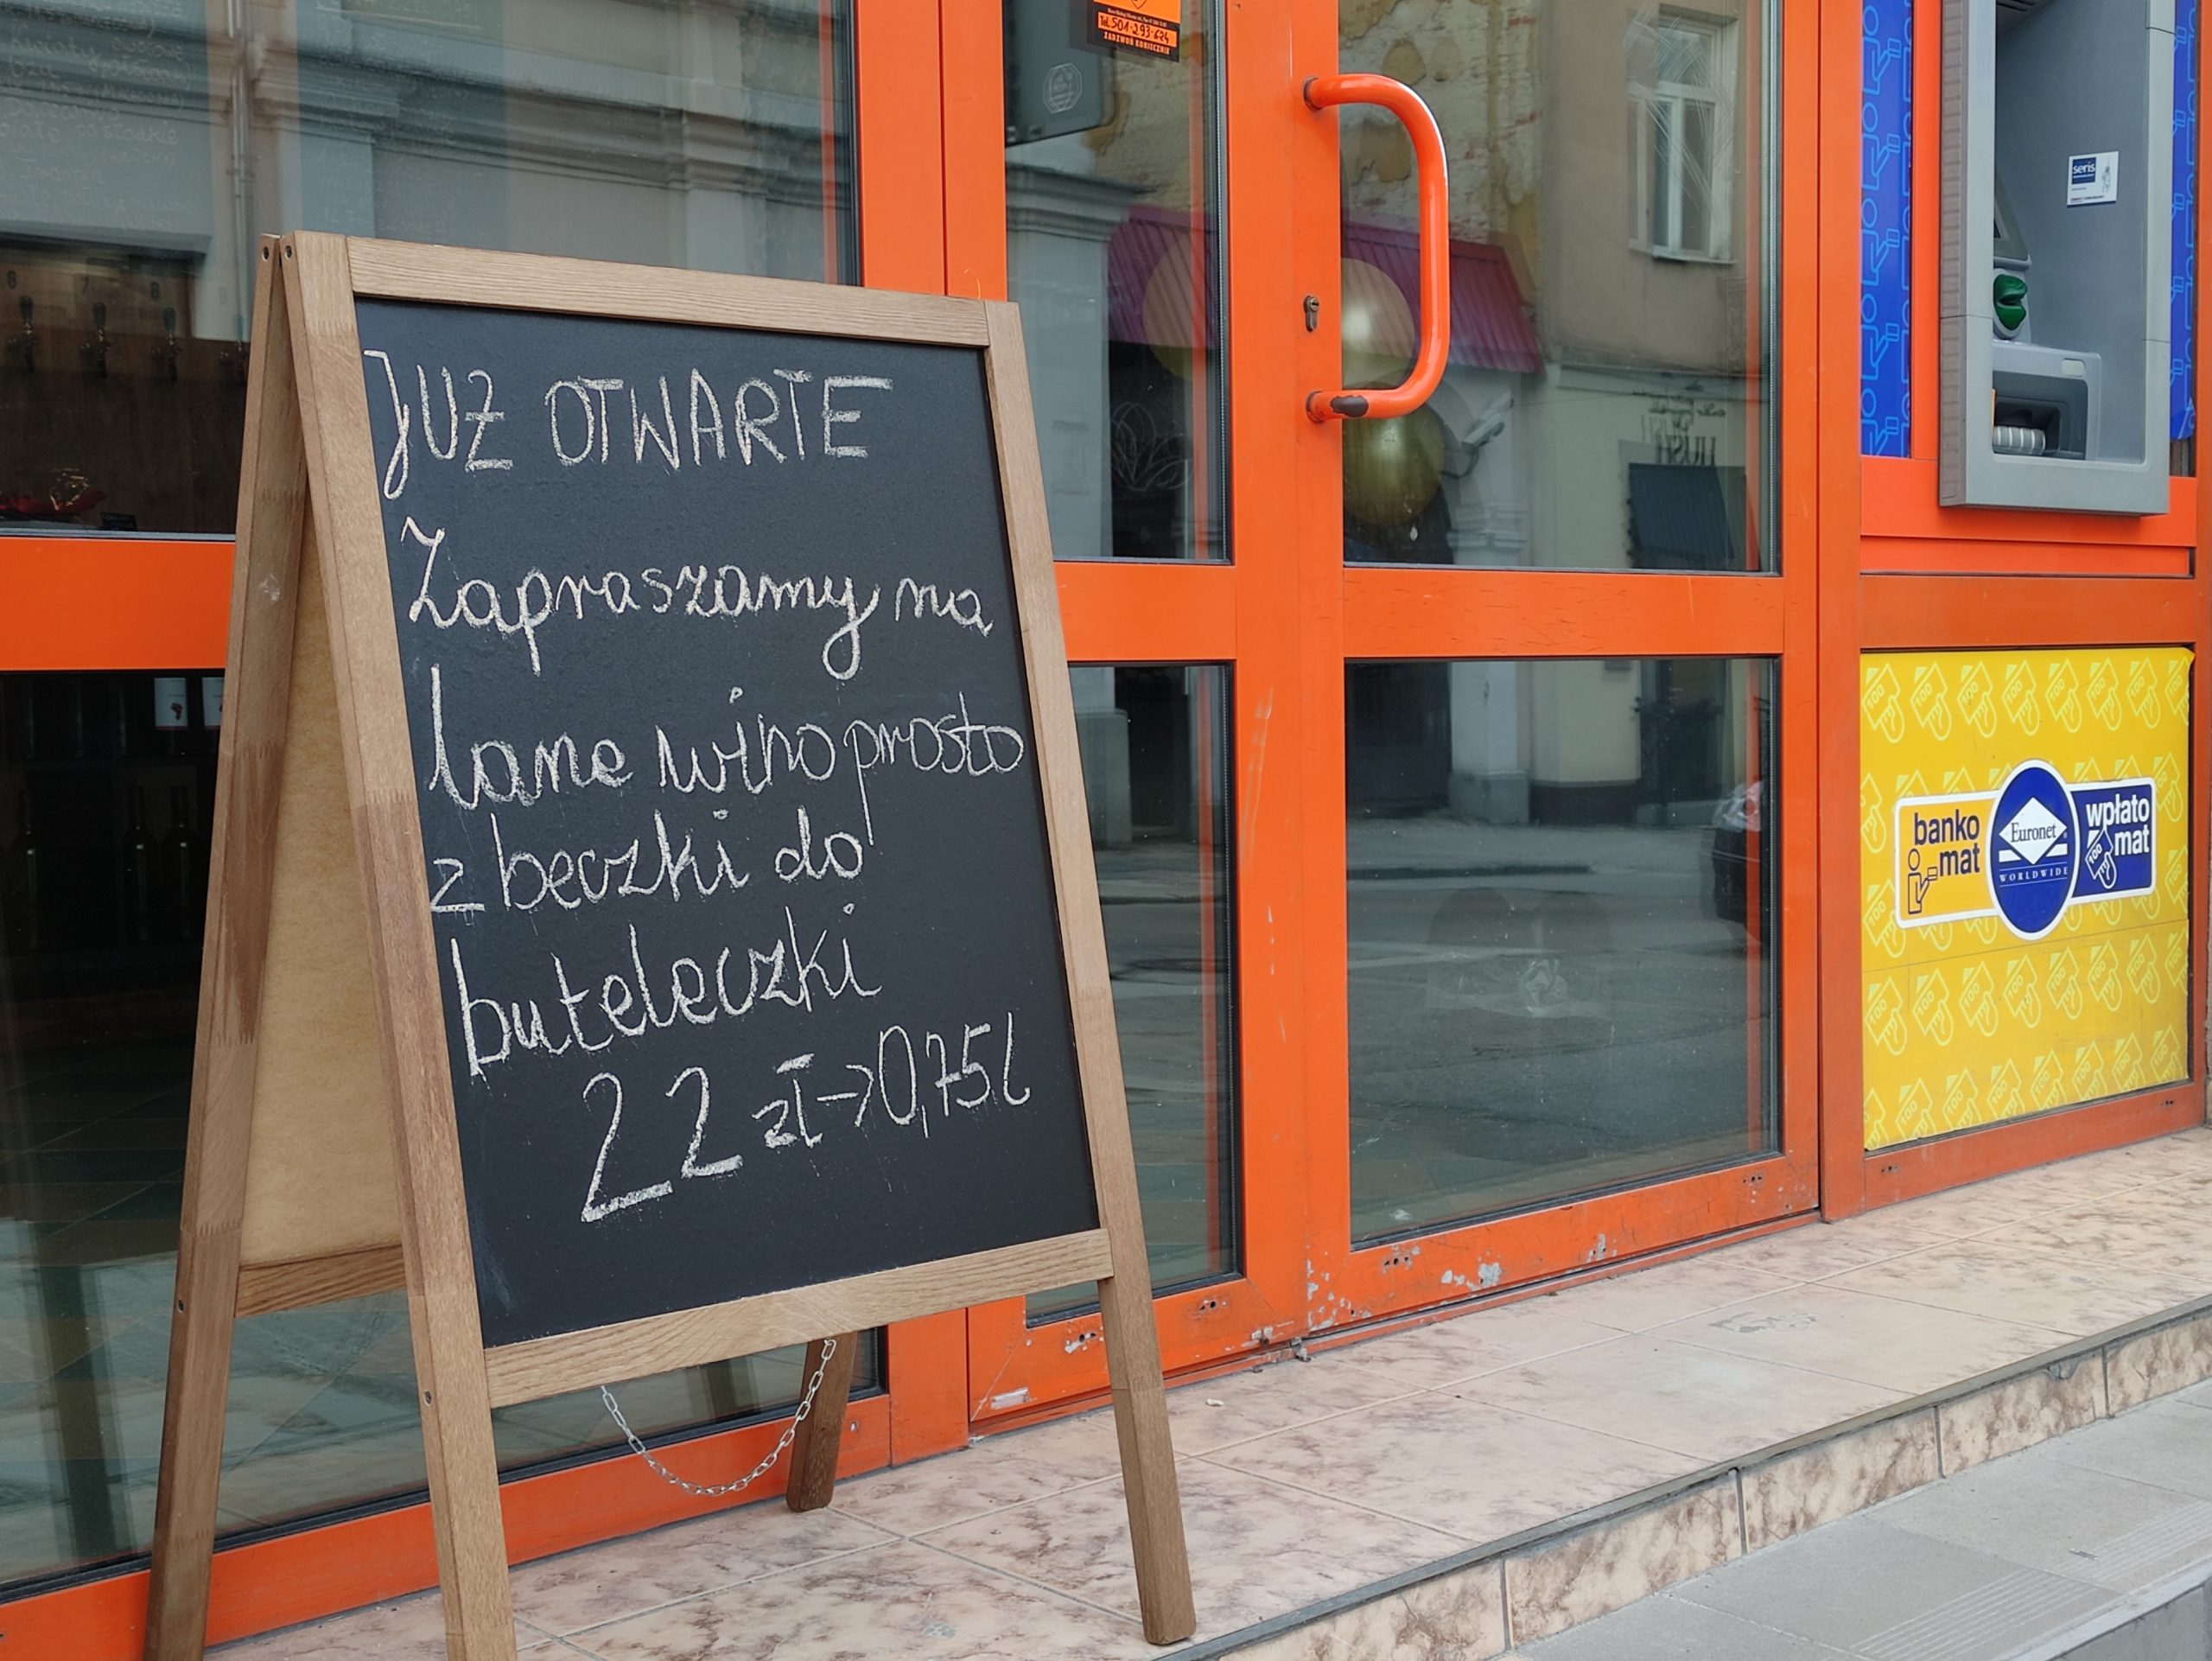 JUŻ OTWARTE
Zapraszamy na
lane wino prosto
z beczki do
buteleczki
22 zł→0,75l
Tel. 501-293-624
ZADZWOŃ KONIECZNIE
seris
banko
mat
Euronet
WORLDWIDE
wpłato
mat
100
6
7
8